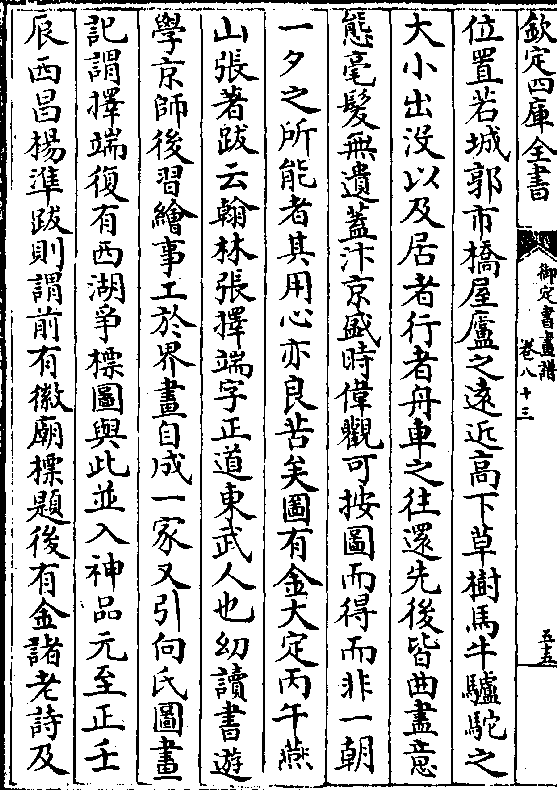 欽定四庫全書
御定書畫譜
卷八十三
五五
位置若城郭市橋屋廬之遠近高下草樹馬牛驢駝之
大小出没以及居者行者舟車之往還先後皆曲盡意
態毫髮無遺蓋汴京盛時偉觀可按圖而得而非一朝
一夕之所能者其用心亦良苦矣圖有金大定丙午燕
山張著跋云翰林張擇端字正道東武人也幼讀書遊
學京師後習繪事工於界畫自成一家又引向氏圖畫
記謂擇端復有西湖爭標圖與此並入神品元至正壬
辰西昌楊準跋則謂前有徽廟標題後有金諸老詩及